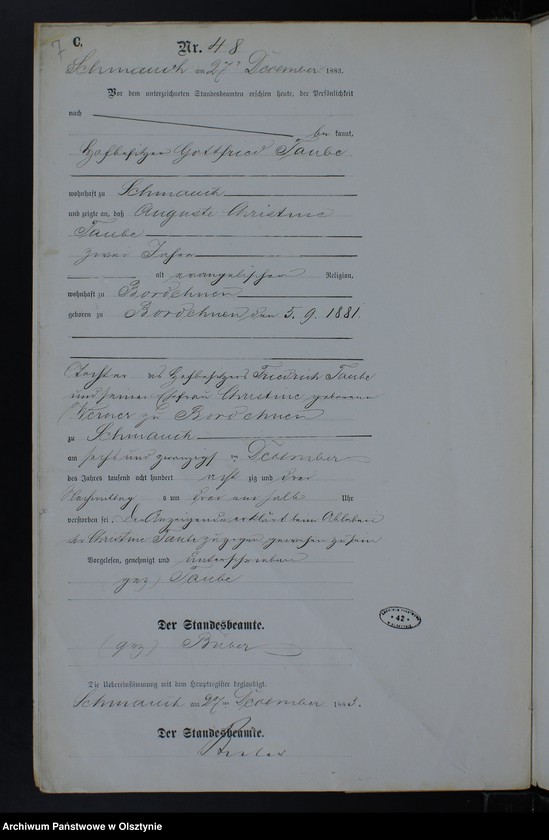 7
C.
Nr. 48
Schmauch am 27ᵗ December 1883.
Vor dem unterzeichneten Standesbeamten erschien heute, der Persönlichkeit
nach
be kannt,
Hofbesitzer Gottfried Taube
wohnhaft zu Schmauch
und zeigte an, daß Auguste Christine
Taube
zwei Jahre
alt evangelischer Religion,
wohnhaft zu Bordehnen
geboren zu Bordehnen den 5. 9. 1881.
Tochter des Hofbesitzers Friedrich Taube
und seiner Ehefrau Christine geborene
Werner zu Bordehnen
zu Schmauch
am sechs und zwanzigsten December
des Jahres tausend acht hundert acht zig und drei
Nachmittag s um drei ein halb Uhr
verstorben sei. Der Anzeigende erklärt beim Ableben
der Christine Taube zugegen gewesen zu sein
Vorgelesen, genehmigt und unterschrieben
(gez) Taube
Der Standesbeamte.
(gez)
Die Uebereinstimmung mit dem Hauptregister beglaubigt.
Schmauch am 27ten December 1883.
Der Standesbeamte.
42
Archiwum Państwowe w Olsztynie